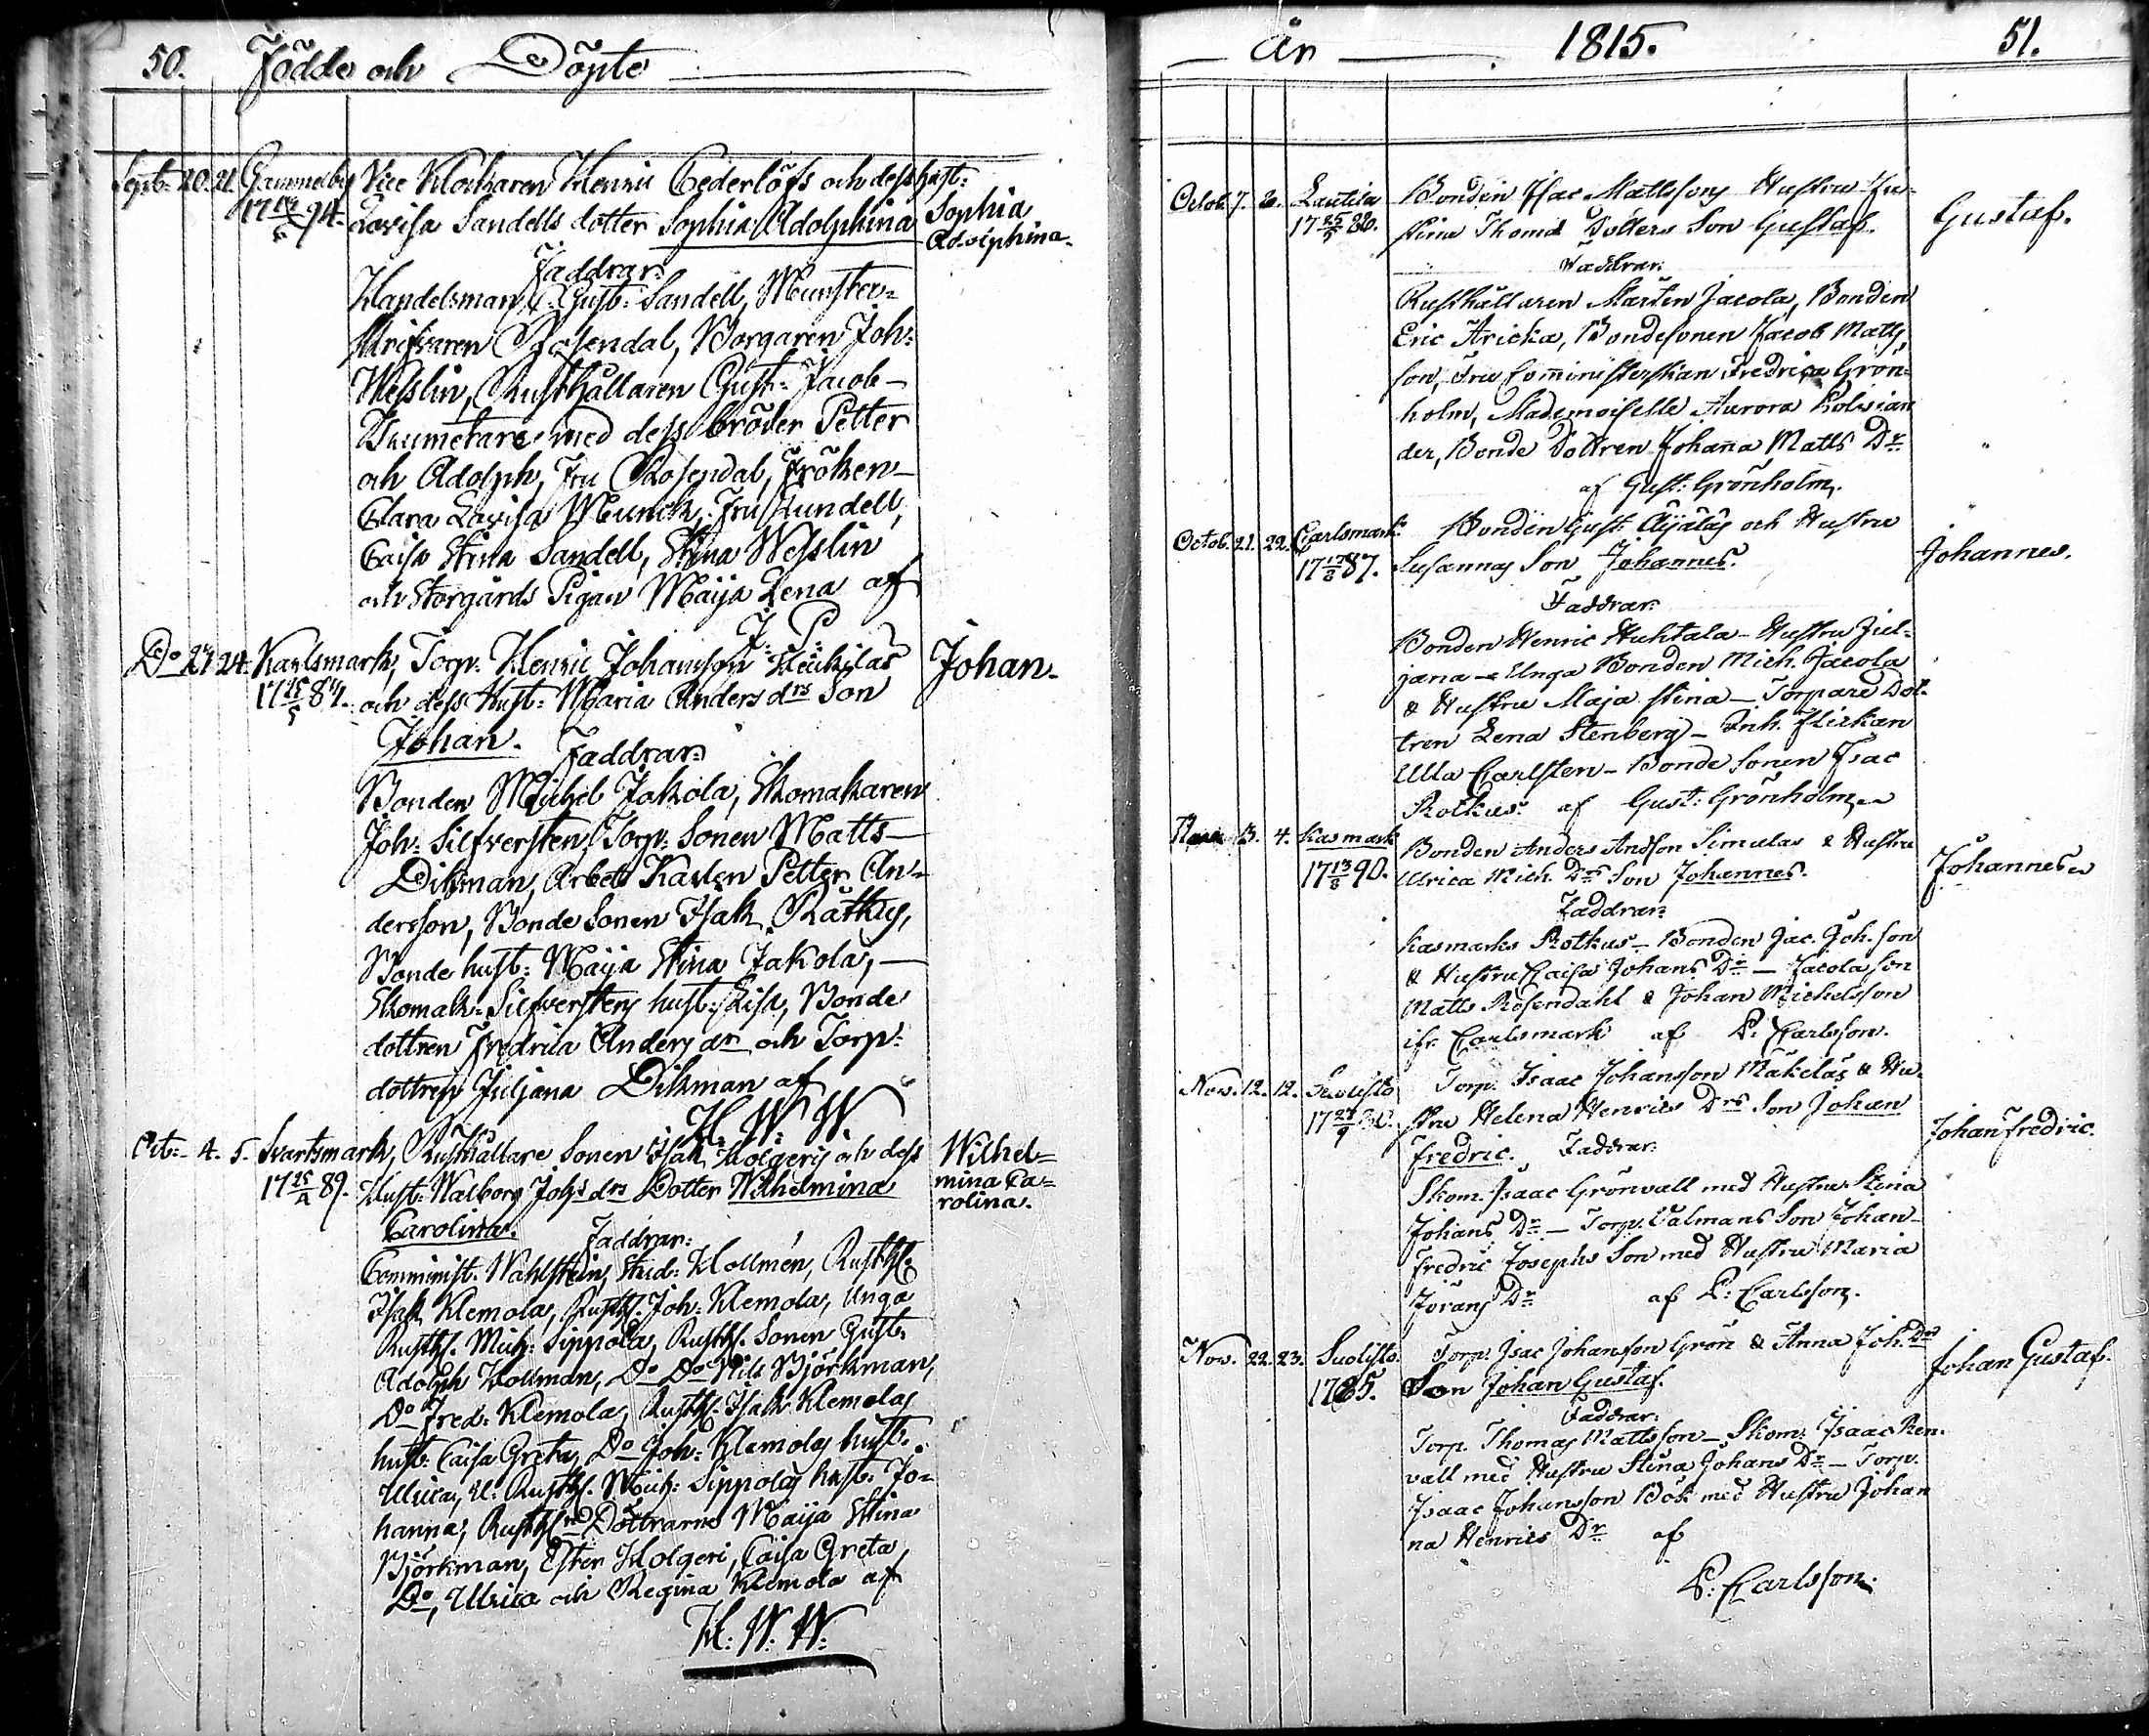 50. Födde och Döpte
Sept: 20. 21. Gammelby Vice Klockaren Henric Cederlöfs och dess hust:
17 94. Lovisa Sandells dotter Sophia Adolphina Sophia
Adolphina.
Faddrar:
Handelsman C: Gust: Sandell, Munster-
skrifvaren Rosendal, Borgaren Joh:
Wesslin, Rusthållaren Gust: Jacob-
med dess bröder Petter
och Adolph, Fru Rosendal, Fröken
Clara Lovisa Munck, Fru Lundell,
Caisa Stina Sandell, Stina Wesslin
och Storgårds Pigan Maija Lena af
J. P.
Do 24. Karlsmark, Torp: Henric Johansson Heikilas Johan.
17 25/5 87. och dess Hust: Maria Anders drs Son
Johan. Faddrar:
Bonden Michel Jakola, Skomakaren
Joh: Silfversten, Torp: Sonen Matts
Dikman, Arbets Karlen Petter An-
dersson, Bonde Sonen Isak Råtkus,
Bonde hust: Maija Stina Jakola,
Skomak: Silfverstens hust: Lisa, Bonde
dottren Fredrica Anders dr och Torp:
dottren Juljana Dikman af
H. W. W.
Oct: 4. 5. Svartsmark, Rusthållare Sonen Isak Holgers och dess Wilhel=
17 25/4 89. Hust: Walborg Johs drs Dotter Wilhelmina mina Ca=
Carolina. Faddrar: rolina.
Comminist. Wahlstein, Stud: Hollmén, Rusth:
Isak Klemola, Rusth: Joh: Klemola, Unga
Rusth: Mich: Sippola, Rusth: Sonen Gust:
Adolph Hollman, Do Do Nils Björkman,
Do Fred: Klemola, Rusth: Isak Klemolas
hust: Caisa Greta, Do Joh: Klemolas hust:
Ulrica, U: Rusth: Mich: Sippolas hust: Jo-
hanna, Rusth: Döttrarne Maija Stina
Björkman, Ester Holgeri, Caisa Greta,
Do, Ulrica och Regina Klemola af
H: W: W:
År 1815. 51.
Octob. 7. 8. Lautila Bonden Isac Mattssons Hustru Ju-
17 25/5 86. stina Thomæ Dotters Son Gustaf. Gustaf.
Faddrar:
Rusthållaren Mårten Jacola, Bonden
Eric Aricka, Bondesonen Jacob Matts
son, Fru Comministerskan Fredrica Grön-
holm, Mademoiselle Aurora Polvian
der, Bonde Dottren Johanna Matts Dr
af Gust: Grönholm.
Octob. 21. 22. Carlsmark Bonden Gust: Äijälas och Hustru
17 17/8 87. Susannas Son Johannes. Johannes.
Faddrar:
Bonden Henric Huhtala - Hustru Jul-
jana - Unga Bonden Mich. Jacola
& Hustru Maja Stina - Torpare Dot-
tren Lena Stenberg - Inh. Flickan
Ulla Carlsten - Bonde Sonen Isac
Rotkus. af Gust: Grönholm
3. 4. Kasmark Bonden Anders Andson Simulas & Hustru
17 13/8 90. Ulrica Mich. Drs Son Johannes. Johannes
Faddrar:
Kasmarks Rotkus - Bonden Jac. Joh. son
& Hustru Caisa Johans Dr - Jacola son
Matts Rosendahl & Johan Michelsson
ifr. Carlsmark af P: Carlsson.
Nov. 12. 12. Suolisto Torp. Isaac Johansson Mäkeläs & Hu-
17 stru Helena Henrics Drs Son Johan
Fredric. Faddrar: Johan Fredric.
Skom. Isaac Grönvall med Hustru Stina
Johans Dr - Torp. Valmans Son Johan
Fredric Josephs Son med Hustru Maria
Jörans Dr af P: Carlsson.
Nov. 22. 23. Suolisto. Torp. Isac Johanson Grön & Anna Joh. Drs
1785. Son Johan Gustaf. Johan Gustaf.
Faddrar:
Torp. Thomas Mattsson - Skom. Isaac Ren-
vall med Hustru Stina Johans Dr - Torp.
Isaac Johansson Böök med Hustru Johan
na Henrics Dr af
P: Carlsson.